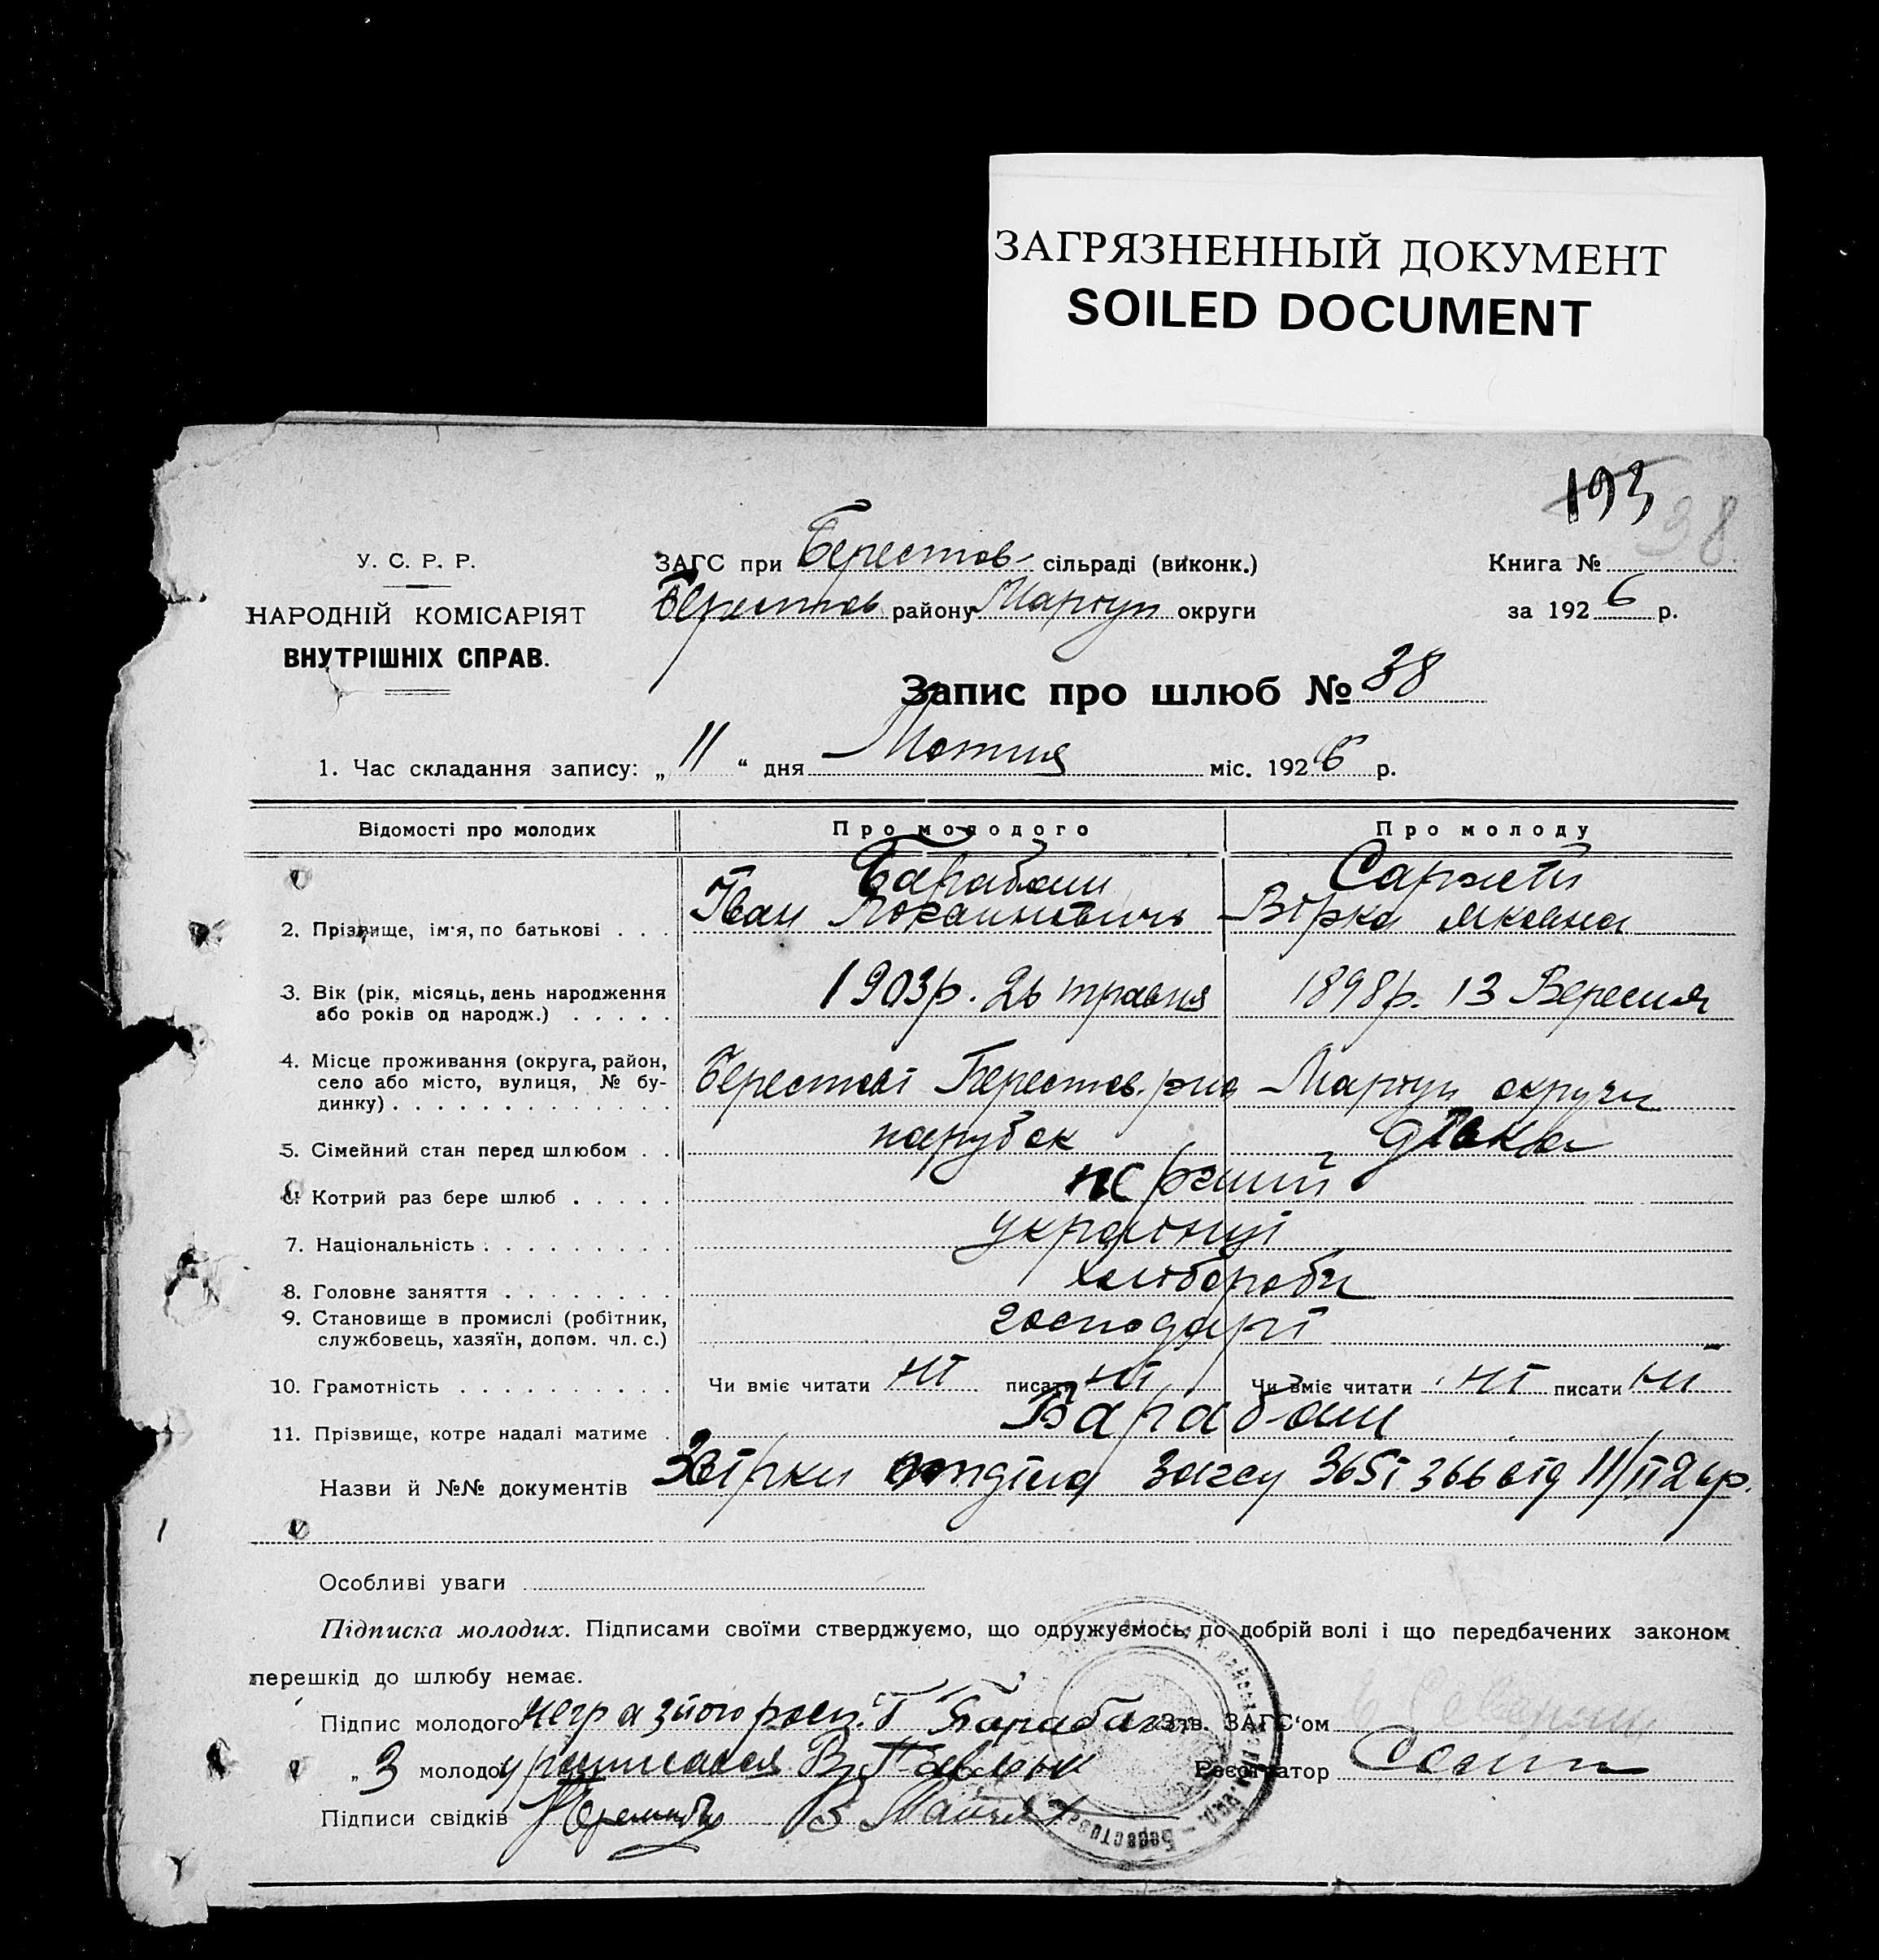 ЗАГРЯЗНЕННЫЙ ДОКУМЕНТ
SOILED DOCUMENT
193
38.
У. С. Р. Р.
НАРОДНІЙ КОМІСАРІЯТ
ВНУТРІШНІХ СПРАВ.
ЗАГС при Берестов- сільраді (виконк.)
Берестов району Маріуп округи
Книга №
за 1926 р.
Запис про шлюб № 38
1. Час складання запису: „11“ дня міс. 1926 р.
Відомості про молодих Про молодого Про молоду
Барабаш
2. Прізвище, ім‘я, по батькові . . . Іван Вірка Яковна
3. Вік (рік, місяць, день народження
або років од народж.) . . . . . 1903р. 26 травня 1898р. 13 Вересня
4. Місце проживання (округа, район,
село або місто, вулиця, № бу-
динку) . . . . . . . . . . . . . Берестові Берестов. р-на Маріуп округи
5. Сімейний стан перед шлюбом . . парубок дівка
6. Котрий раз бере шлюб . . . . . перший
7. Національність . . . . . . . . . українці
8. Головне заняття . . . . . . . . хлібороби
9. Становище в промислі (робітник,
службовець, хазяїн, допом. чл. с.) господарі
10. Грамотність . . . . . . . . . . Чи вміє читати ні писати ні Чи вміє читати ні писати ні
11. Прізвище, котре надалі матиме . Барабаш
Назви й №№ документів загсу 365 і 366 від 11/ІІ 26р.
Особливі уваги
Підписка молодих. Підписами своїми стверджуємо, що одружуємось по добрій волі і що передбачених законом
перешкід до шлюбу немає.
Підпис молодого Барабаш Зав. ЗАГС‘ом
„ молодої Реєстратор
Підписи свідків